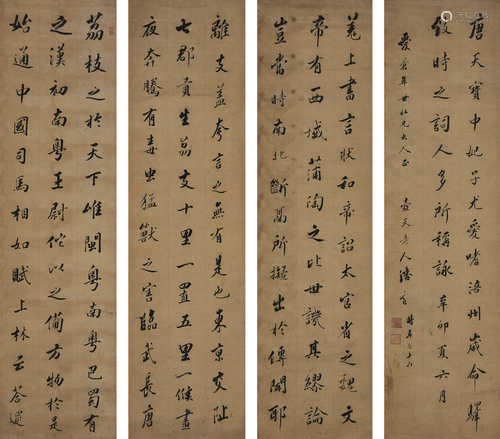 荔枝之於天下唯閩粵南粵巴蜀有
之漢初南粵王尉佗以之備方物於是
始通中國司馬相如賦上林云荅遝
離支蓋夸言之無有是也東京交阯
七郡貢生荔支十里一置五里一候晝
夜奔騰有毒虫猛獸之害臨武長唐
羌上書言狀和帝詔太官省之魏文
帝有西域蒲陶之比世譏其繆論
豈當時南北斷隔所擬出於傳聞耶
唐天寶中妃子尤愛嗜涪州歲命驛
致時之詞人多所稱詠 辛卯夏六月